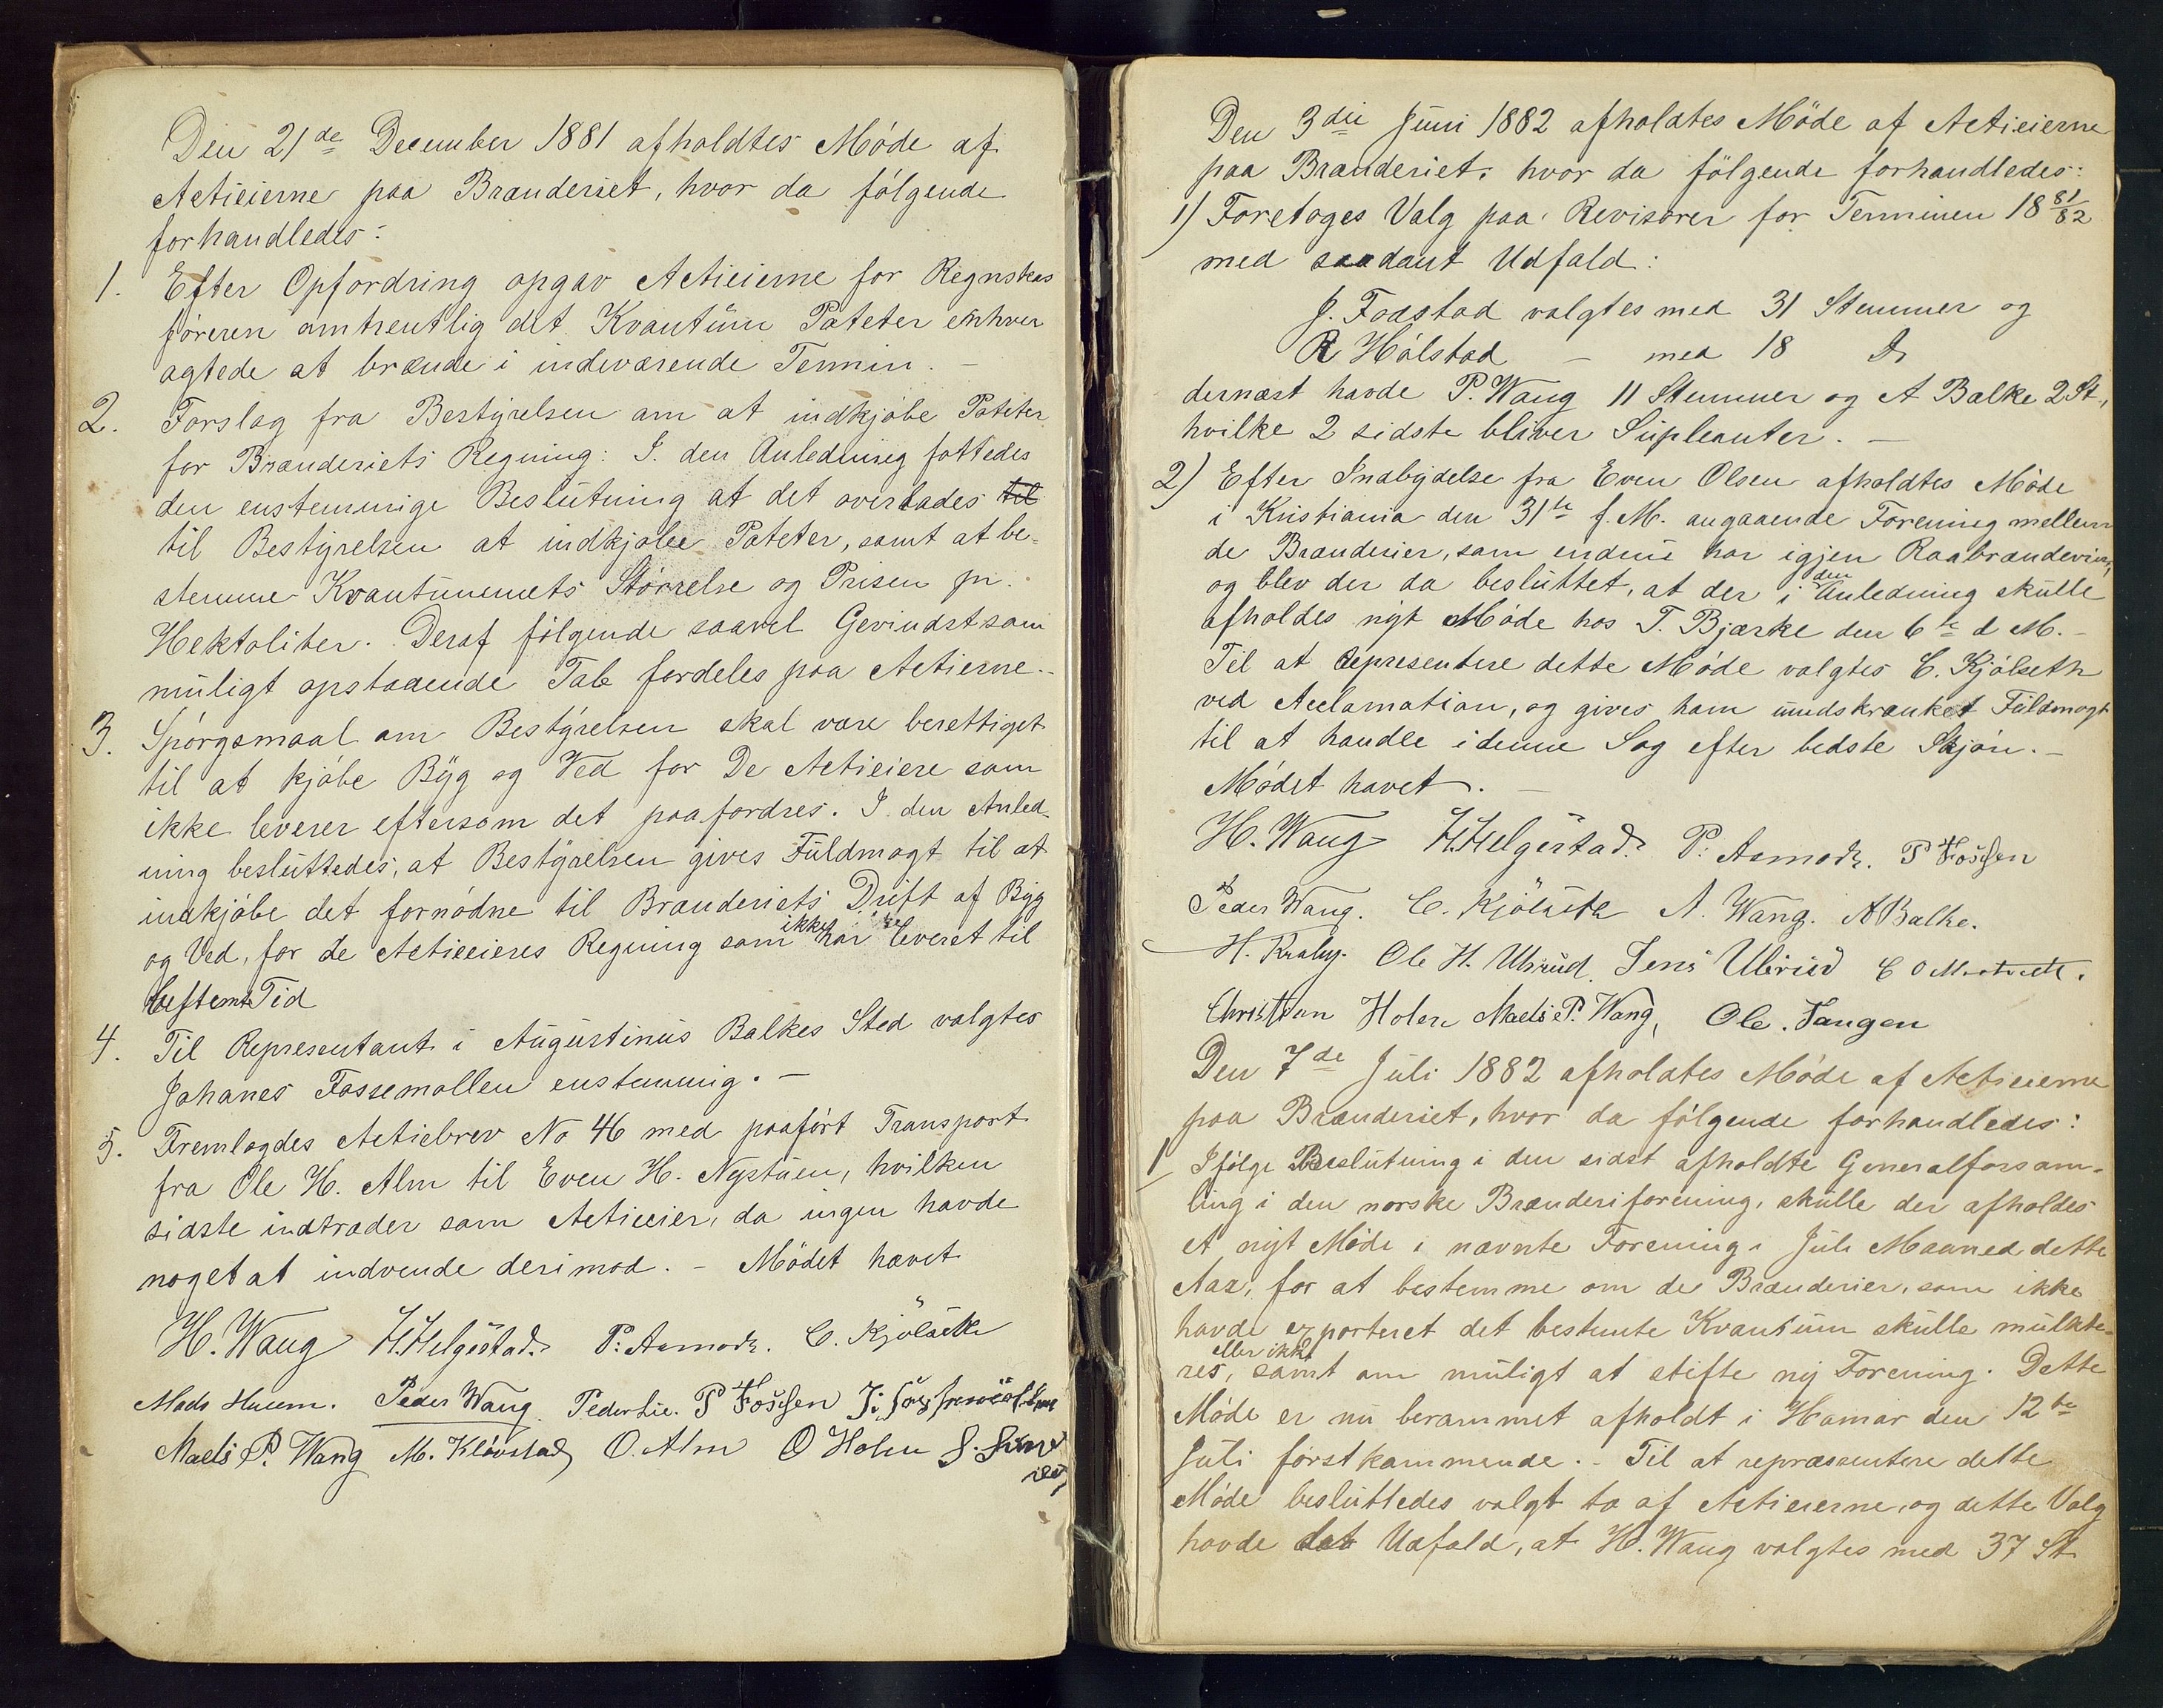 Den 21de December 1881 afholdtes Møde af
Actieierne paa Brænderiet, hvor da følgende
forhandledes:
1. Efter Opfordring opgav Actieierne for Regnskabs
føreren omtrentlig det Kvantum Poteter enhver
agtede at brænde i indeværende Termin. –
2. Forslag fra Bestyrelsen om at indkjøbe Poteter
for Brænderiets Regning: I den Anledning fattedes
den enstemmige Beslutning at det overlades til
til Bestyrelsen at indkjøbe Poteter, samt at be-
stemme Kvantummets Størrelse og Prisen pr.
Hektoliter. Deraf følgende saavel Gevindst som
muligt opstaaende Tab fordeles paa Actierne. –
3. Spørgsmaal om Bestyrelsen skal være berettiget
til at kjøbe Byg og Ved for De Actieiere som
ikke leverer eftersom det paafordres. I den Anled-
ning besluttedes, at Bestyrelsen gives Fuldmagt til at
indkjøbe det fornødne til Brænderiets Drift af Byg
og Ved, for de Actieeieres Regning som ikke har leveret til
bestemt Tid
4. Til Representant i Augustinus Balkes Sted valgtes
Johanes Fossemøllen enstemmig. –
5. Fremlagdes Actiebrev No 46 med paaført Transport
fra Ole H. Alm til Even H. Nystuen, hvilken
sidste indtræder som Actieeier, da ingen havde
noget at indvende derimod. – Mødet hævet
H. Wang H. Helgestad. P: Asmodr. C. Kjølseth
Mads Huem. Peder Wang. Peder Lie. P Fossen
Maels P. Wang M. Kløvstad O. Alm O Holen
Den 3die Juni 1882 afholdtes Møde af Actieierne
paa Brænderiet, hvor da følgende forhandledes:
1) Foretoges Valg paa Revisorer for Terminen 18 81/82
med saadant Udfald:
J. Fodstad valgtes med 31 Stemmer og
R Hølstad – med 18 Do
dernæst havde P. Wang 11 Stemmer og A Balke 2 St.,
hvilke 2 sidste bliver Supleanter. –
2) Efter Indbydelse fra Even Olsen afholdtes Møde
i Kristiania den 31te f. M. angaaende Forening mellem
de Brænderier, som endnu har igjen Raabrændevin,
og blev der da besluttet, at der i den Anledning skulle
afholdes nyt Møde hos T. Bjerke den 6te d M. –
Til at representere dette Møde valgtes C. Kjølseth
ved Acclamation, og gives ham uindskrænket Fuldmagt
til at handle i denne Sag efter bedste Skjøn. –
Mødet hævet. –
H. Wang H. Helgestad. P. Asmodr. P Fossen
Peder Wang. C. Kjølseth A. Wang. A Balke.
H. Kraby. Ole H. Ulsrud. Jens Ulsrud
Christian Holen Maels P. Wang, Ole. Tangen
Den 7de Juli 1882 afholdtes Møde af Actieierne
paa Brænderiet, hvor da følgende forhandledes:
1 Ifølge Beslutning i den sidst afholdte Generalforsam-
ling i den norske Brænderiforening, skulle der afholdes
et nyt Møde i nævnte Forening i Juli Maaned dette
Aar, for at bestemme om de Brænderier, som ikke
havde exporteret det bestemte Kvantum skulle mulkte-
res, eller ikke samt om muligt at stifte ny Forening. Dette
Møde er nu berammet afholdt i Hamar den 12te
Juli førstkommende. – Til at repræsentere dette
Møde besluttedes valgt to af Actieierne, og dette Valg
havde det Udfald, at H. Wang valgtes med 37 St